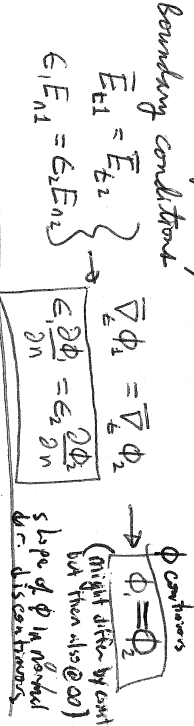 boundary conditions
Ē_t1 = Ē_t2
ϵ₁E_n1 = ϵ₂E_n2 } →
∇̄_t ϕ₁ = ∇̄_t ϕ₂ →
ϵ₁ ∂ϕ₁/∂n = ϵ₂ ∂ϕ₂/∂n
ϕ continuous
ϕ₁ = ϕ₂
(might differ by const
but then also @ ∞)
slope of ϕ in normal
dir. discontinuous